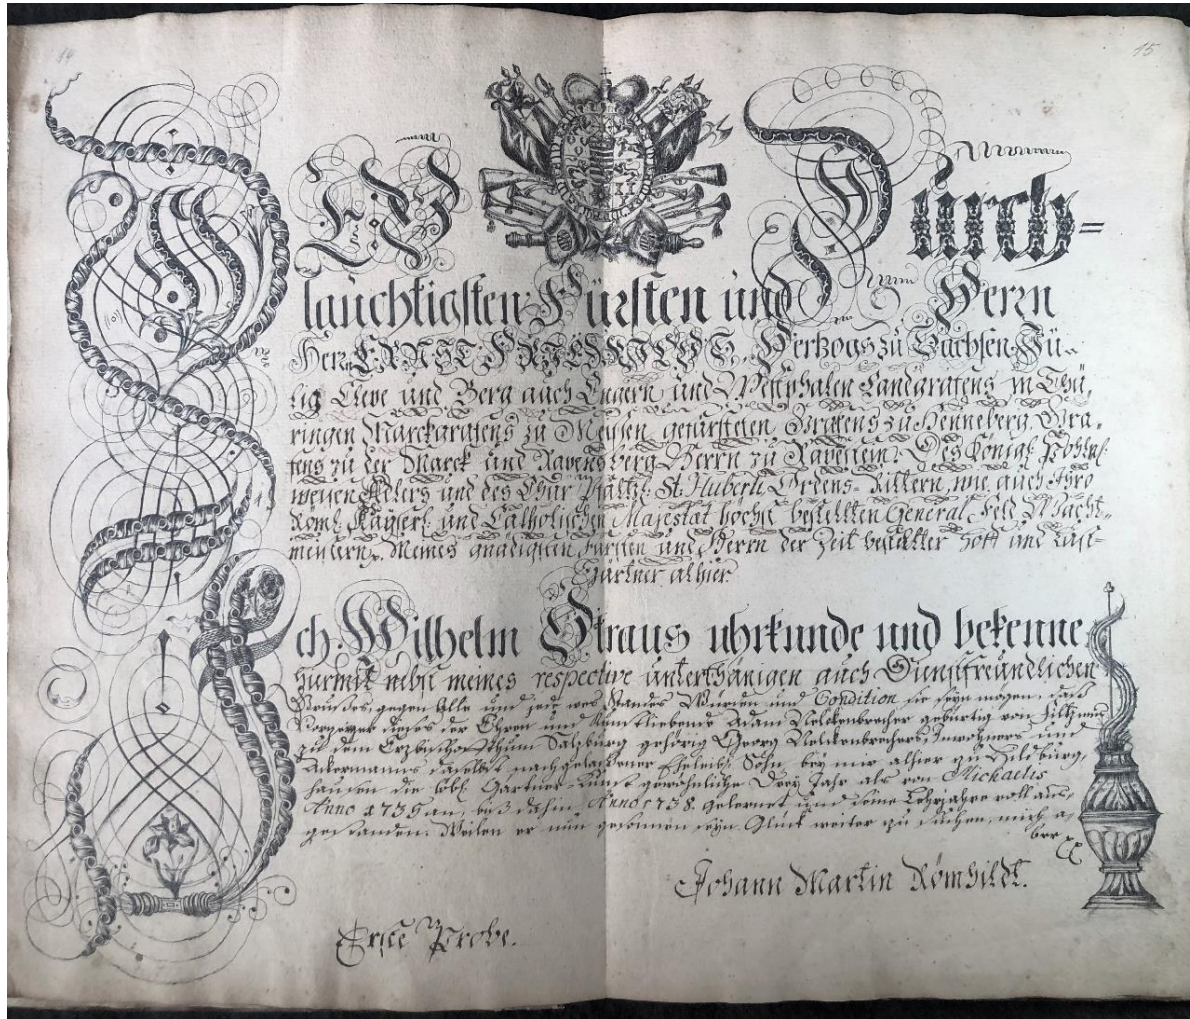 14
15
Des Durch=
lauchtigsten Fürsten und Herrn
Herrn ERNST FRIEDRICHS, Hertzogs zu Sachsen Jü-
lig Cleve und Berg auch Engern und Westphalen Landgrafens in Thü,
ringen Marckgrafens zu Meissen, gefürsteten Grafens zu Henneberg, Gra-
fens zu der Marck und Ravensberg Herrn zu Ravenstein. Des Königl. Pohln.
weysen Adlers und des Chur Pfaltzl. St. Huberti Ordens-Rittern, wie auch Ihro
Röml. Kayserl. und Catholischen Majestät höchst bestellten General Feld Wacht-
meistern. Meines gnädigsten Fürsten und Herrn der Zeit bestellter Hoff und Lust-
Gärtner alhier.
Ich Wilhelm Straus uhrkunde und bekenne
hirmit nebst meines respective unterthänigen auch Dienstfreundlichen
Gruses, gegen Alle und jede wes Standes Würden und Condition sie seyn mögen, daß
Vorzeiger dieses der Ehren und Kunstliebende Adam Nelckenbrecher gebürtig von
zu dem Erzbischoffthum Saltzburg gehörig Georg Nelckenbrechers, Inwohners und
Ackermanns daselbst nachgelassener Eheleibl. Sohn, bey mir alhier zu Hildburg,
hausen die löbl. Gärtner-Kunst gewöhnliche Drey Jahr als von Michaelis
Anno 1735 an, biß dahin Anno 1738. gelernet und seine Lehrjahre voll aus,
gestanden. Weilen er nun gesonnen seyn Glück weiter zu suchen, mich a,
ber
Johann Martin Römhildt.
Erste Probe.